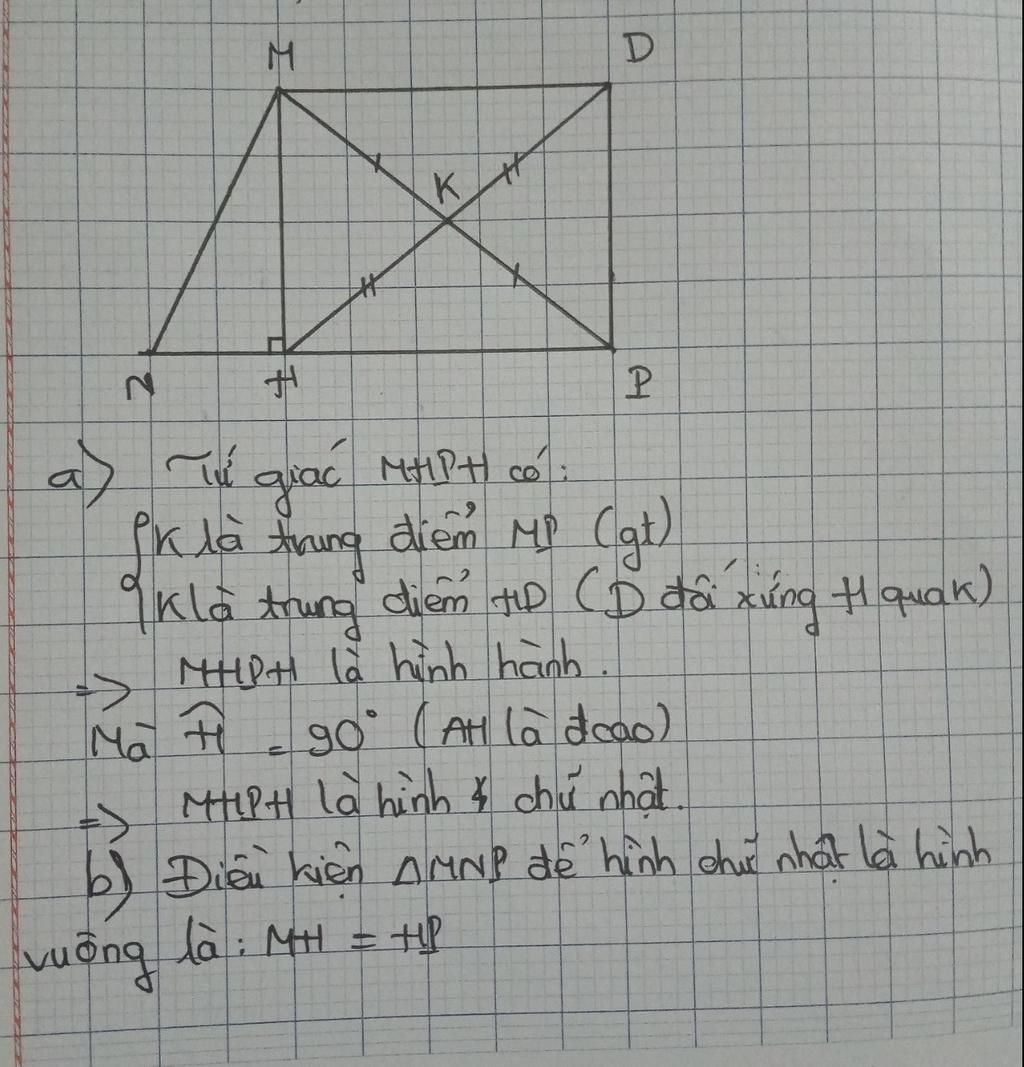 M D
K
N H P
a) Tứ giác MHPH có:
K là trung điểm MP (gt)
K là trung điểm HD (D đối xứng H qua K)
=> MHPH là hình hành.
Mà Ĥ = 90° (AH là đcao)
=> MHPH là hình chữ nhật.
b) Điều kiện ΔMNP để hình chữ nhật là hình
vuông là: MH = HP